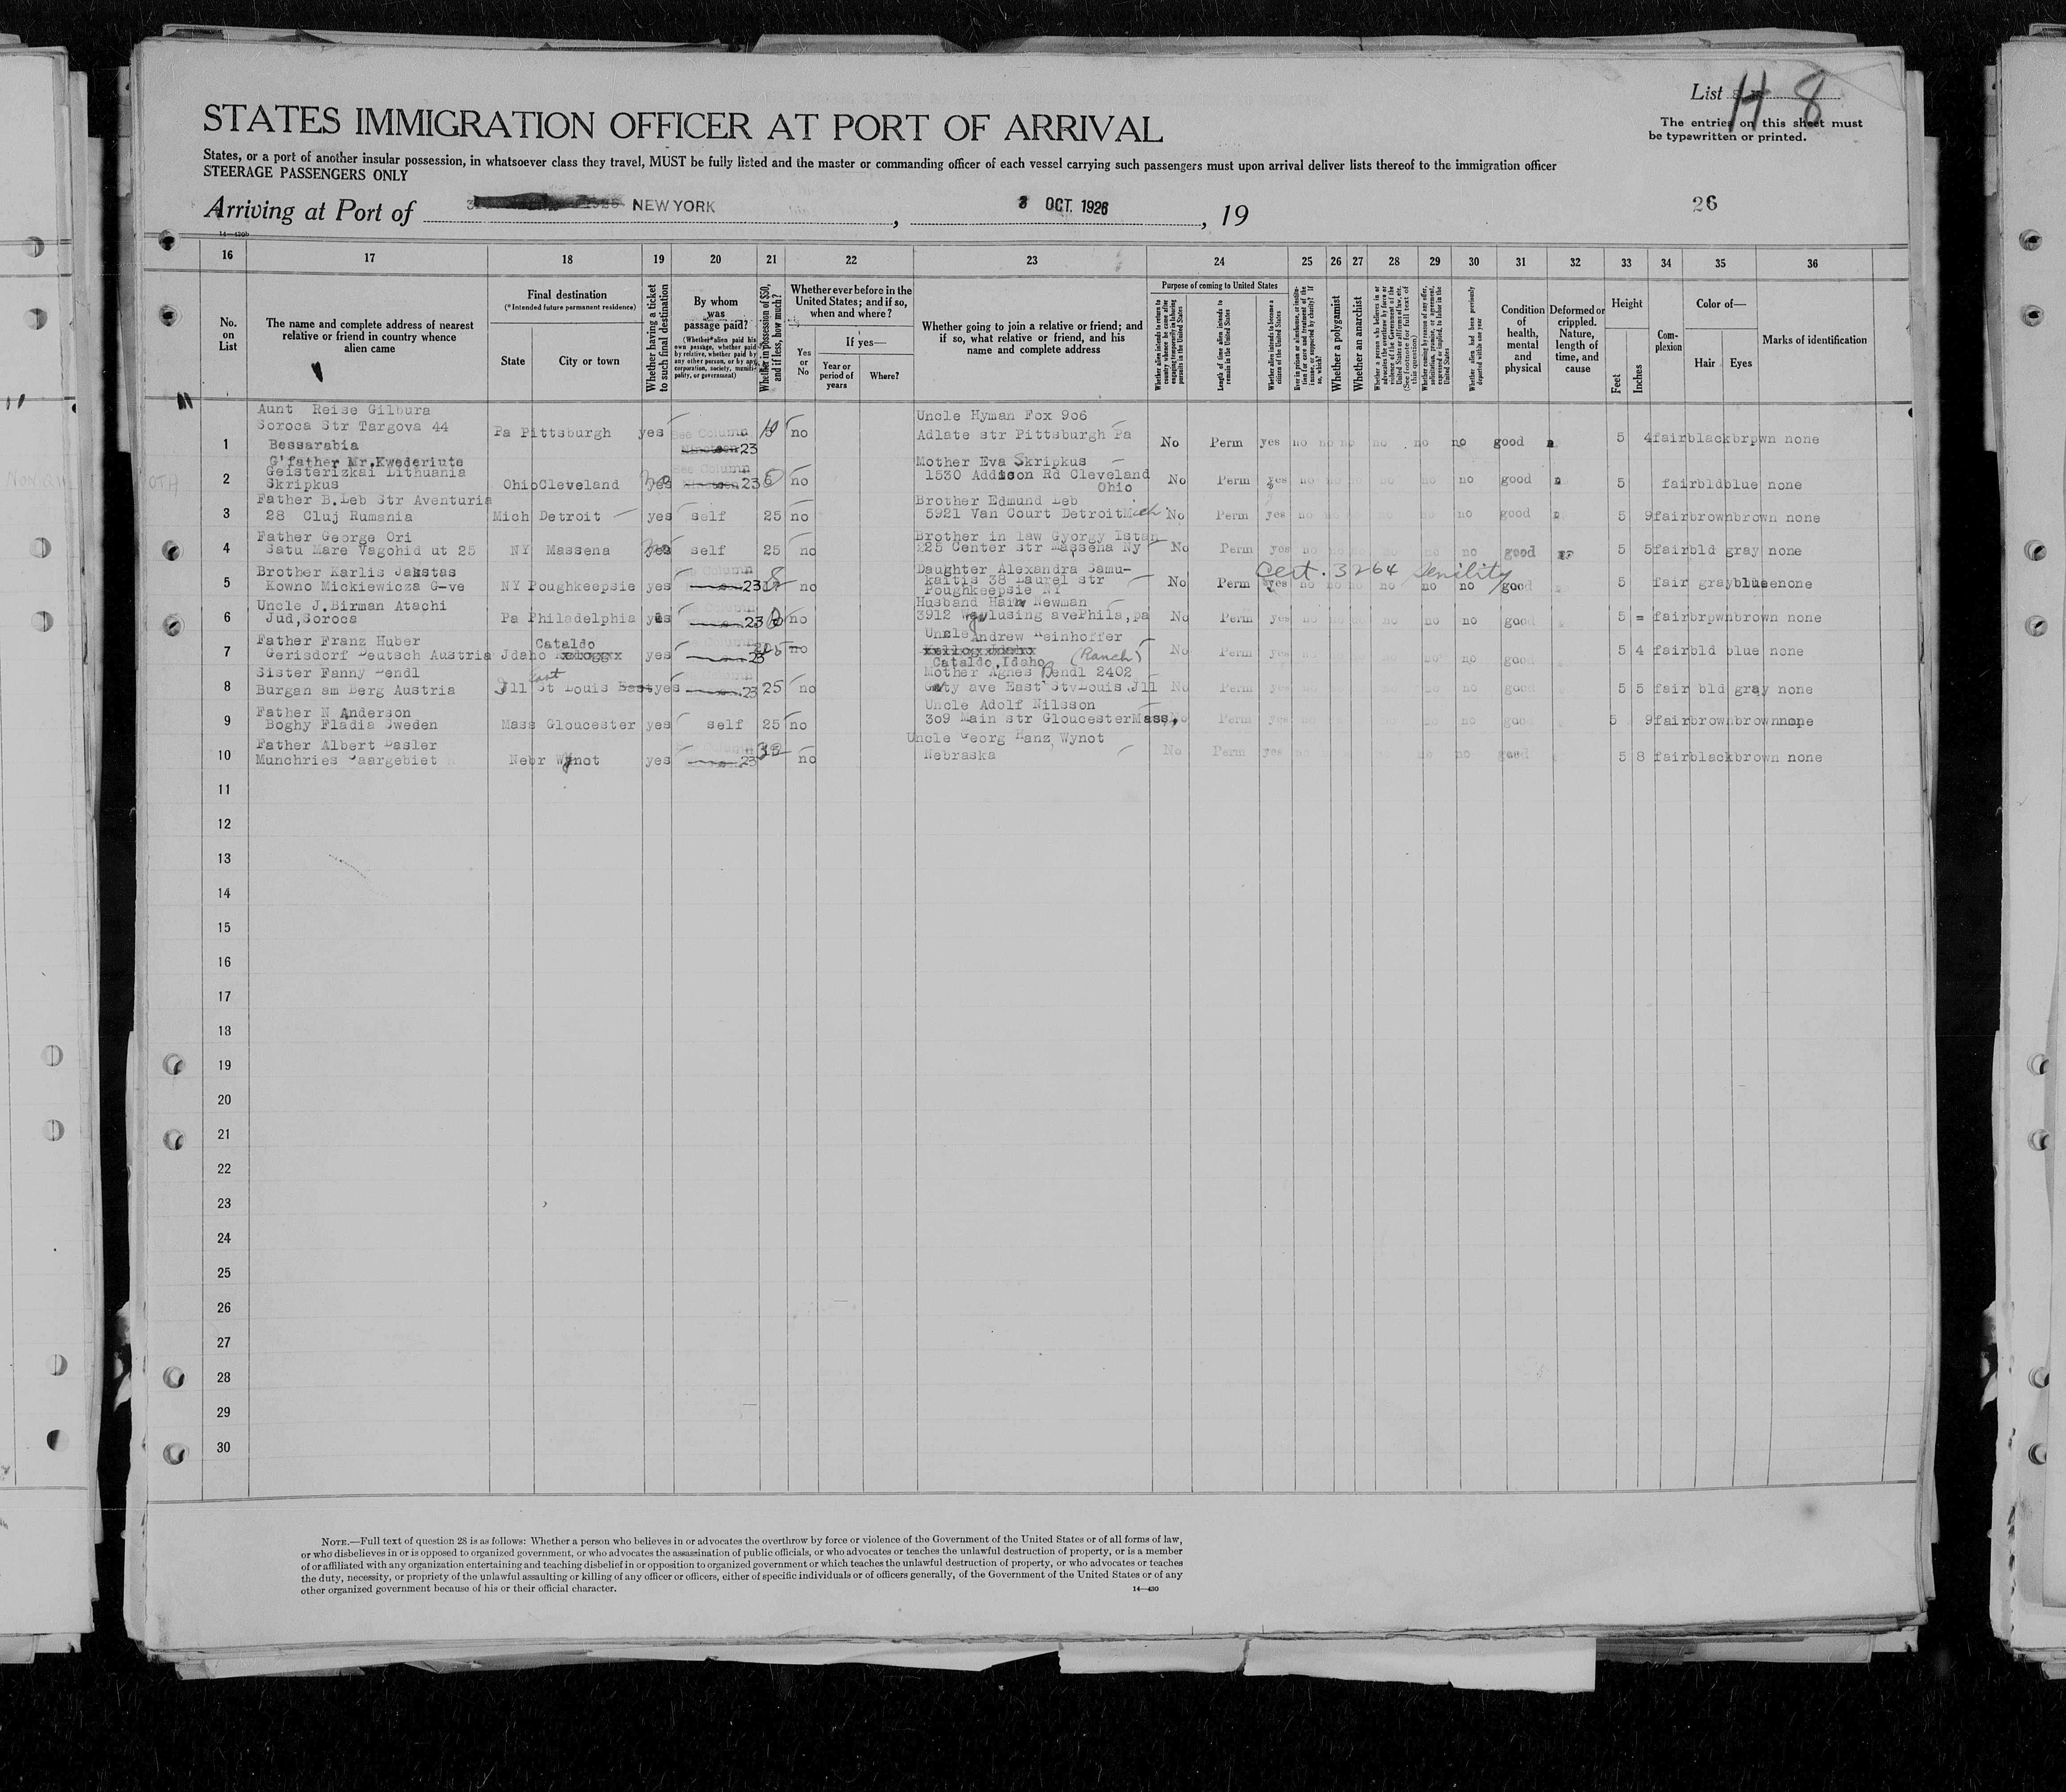 List H 8
The entries on this sheet must
be typewritten or printed.
STATES IMMIGRATION OFFICER AT PORT OF ARRIVAL
States, or a port of another insular possession, in whatsoever class they travel, MUST be fully listed and the master or commanding officer of each vessel carrying such passengers must upon arrival deliver lists thereof to the immigration officer
STEERAGE PASSENGERS ONLY
Arriving at Port of NEW YORK, 3 OCT. 1926, 19 26
14—430b
16 17 18 19 20 21 22 23 24 25 26 27 28 29 30 31 32 33 34 35 36
No. on List
The name and complete address of nearest relative or friend in country whence alien came
Final destination
(*Intended future permanent residence)
State
City or town
Whether having a ticket to such final destination
By whom was passage paid?
(Whether alien paid his own passage, whether paid by relative, whether paid by any other person, or by any corporation, society, municipality, or government)
Whether in possession of $50, and if less, how much?
Whether ever before in the United States; and if so, when and where?
Yes or No
If yes—
Year or period of years
Where?
Whether going to join a relative or friend; and if so, what relative or friend, and his name and complete address
Purpose of coming to United States
Whether alien intends to return to country whence he came after engaging temporarily in laboring pursuits in the United States
Length of time alien intends to remain in the United States
Whether alien intends to become a citizen of the United States
Ever in prison or almshouse, or institution for care and treatment of the insane, or supported by charity? If so, which?
Whether a polygamist
Whether an anarchist
Whether a person who believes in or advocates the overthrow by force or violence of the Government of the United States or all forms of law, etc. (See footnote for full text of this question)
Whether coming by reason of any offer, solicitation, promise, or agreement, expressed or implied, to labor in the United States
Whether alien had been previously deported within one year
Condition of health, mental and physical
Deformed or crippled. Nature, length of time, and cause
Height
Feet
Inches
Complexion
Color of—
Hair
Eyes
Marks of identification
Aunt Reise Gilbura
Soroca Str Targova 44
Bessarabia
1 Pa Pittsburgh yes See Column 23 no
Uncle Hyman Fox 906
Adlate str Pittsburgh Pa
No Perm yes no no no no no no good 5 4 fair black brpwn none
G'father Mr.Kwederiute
Geisterizkai Lithuania
Skripkus
2 Ohio Cleveland See Column 23 no
Mother Eva Skripkus
1530 Addison Rd Cleveland
Ohio
No Perm yes no no no no no good 5 fair bld blue none
Father B.Leb Str Aventuria
28 Cluj Rumania
3 Mich Detroit yes self 25 no
Brother Edmund Leb
5921 Van Court Detroit Mich
No Perm yes no no no no no good 5 9 fair brown brown none
Father George Ori
Satu Mare Vagohid ut 25
4 NY Massena self 25 no
Brother in law Gyorgy Istan
225 Center str Massena Ny
No Perm yes no no no no no good 5 5 fair bld gray none
Brother Karlis Jakstas
Kowno Mickiewicza G-ve
5 NY Poughkeepsie yes Column 23 no
Daughter Alexandra Samu-
kaitis 38 Laurel str
Poughkeepsie NY
Cert. 3264 Senility
No Perm yes no no no no no no good 5 fair gray blue none
Uncle J.Birman Atachi
Jud,Soroca
6 Pa Philadelphia yes 23 no
Husband Haim Newman
3912 Wyalusing ave Phila,pa
No Perm yes no no no no no good 5 = fair brpwn brown none
Father Franz Huber
Gerisdorf Deutsch Austria
7 Jdaho Cataldo yes 23 no
Uncle Andrew Reinhoffer
Cataldo,Idaho (Ranch)
No Perm yes no no no no no good 5 4 fair bld blue none
Sister Fanny Bendl
Burgan am Berg Austria
8 Jll East St Louis yes 23 25 no
Mother Agnes Bendl 2402
Gaty ave East St Louis Jll
No Perm yes no no no no no good 5 5 fair bld gray none
Father N Anderson
Boghy Fladia Sweden
9 Mass Gloucester yes self 25 no
Uncle Adolf Nilsson
309 Main str Gloucester Mass,
No Perm yes no no no no no good 5 9 fair brown brown none
Father Albert Basler
Munchries Saargebiet
10 Nebr Wynot yes 23 no
Uncle Georg Hanz, Wynot
Nebraska
No Perm yes no no no no no good 5 8 fair black brown none
11
12
13
14
15
16
17
18
19
20
21
22
23
24
25
26
27
28
29
30
NOTE.—Full text of question 28 is as follows: Whether a person who believes in or advocates the overthrow by force or violence of the Government of the United States or of all forms of law,
or who disbelieves in or is opposed to organized government, or who advocates the assassination of public officials, or who advocates or teaches the unlawful destruction of property, or is a member
of or affiliated with any organization entertaining and teaching disbelief in or opposition to organized government or which teaches the unlawful destruction of property, or who advocates or teaches
the duty, necessity, or propriety of the unlawful assaulting or killing of any officer or officers, either of specific individuals or of officers generally, of the Government of the United States or of any
other organized government because of his or their official character.
14—430